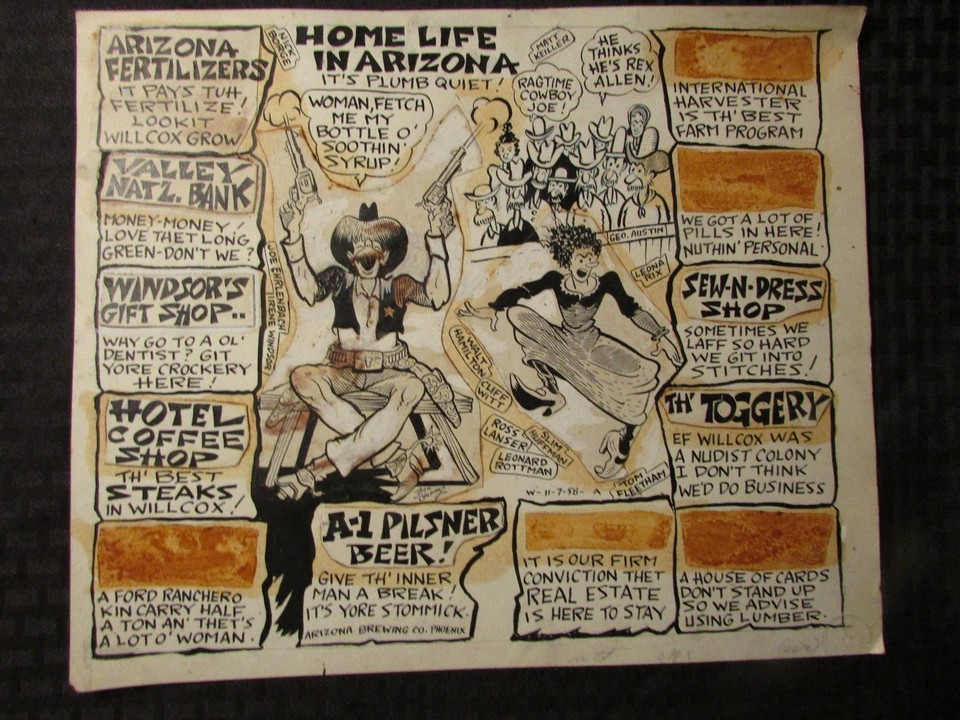 ARIZONA
FERTILIZERS
IT PAYS TUH
FERTILIZE!
LOOKIT
WILLCOX GROW
VALLEY
NATZ. BANK
MONEY-MONEY
LOVE THET LONG
GREEN-DON'T WE?
WINDSOR'S
GIFT SHOP..
WHY GO TO A OL'
DENTIST? GIT
YORE CROCKERY
HERE!
HOTEL
COFFEE
SHOP
TH' BEST
STEAKS
IN WILLCOX!
A FORD RANCHERO
KIN CARRY HALF
A TON AN' THET'S
A LOT O' WOMAN.
NICK
BORGE
HOME LIFE
IN ARIZONA
IT'S PLUMB QUIET!
WOMAN, FETCH
ME MY
BOTTLE O'
SOOTHIN'
SYRUP!
MATT
KEILLER
RAGTIME
COWBOY
JOE!
HE
THINKS
HE'S REX
ALLEN!
GEO. AUSTIN
LEONA
RIX
JOE EHRLENBACH
IRENE WINDSOR
WALT
HAMILTON
CLIFF
WITT
ROSS
LANSER
SLIM
HUFFMAN
LEONARD
ROTTMAN
TOM
FLEETHAM
W-11-7-58- A
A-1 PILSNER
BEER!
GIVE TH' INNER
MAN A BREAK!
IT'S YORE STOMMICK.
ARIZONA BREWING CO. PHOENIX
IT IS OUR FIRM
CONVICTION THET
REAL ESTATE
IS HERE TO STAY
INTERNATIONAL
HARVESTER
IS TH' BEST
FARM PROGRAM
WE GOT A LOT OF
PILLS IN HERE!
NUTHIN' PERSONAL
SEW-N-DRESS
SHOP
SOMETIMES WE
LAFF SO HARD
WE GIT INTO
STITCHES!
TH' TOGGERY
EF WILLCOX WAS
A NUDIST COLONY
I DON'T THINK
WE'D DO BUSINESS
A HOUSE OF CARDS
DON'T STAND UP
SO WE ADVISE
USING LUMBER.